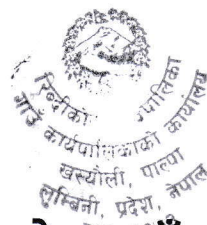 रिब्दीकोट गाउँपालिका
गाउँ कार्यपालिकाको कार्यालय
खस्यौली, पाल्पा
लुम्बिनी, प्रदेश, नेपाल